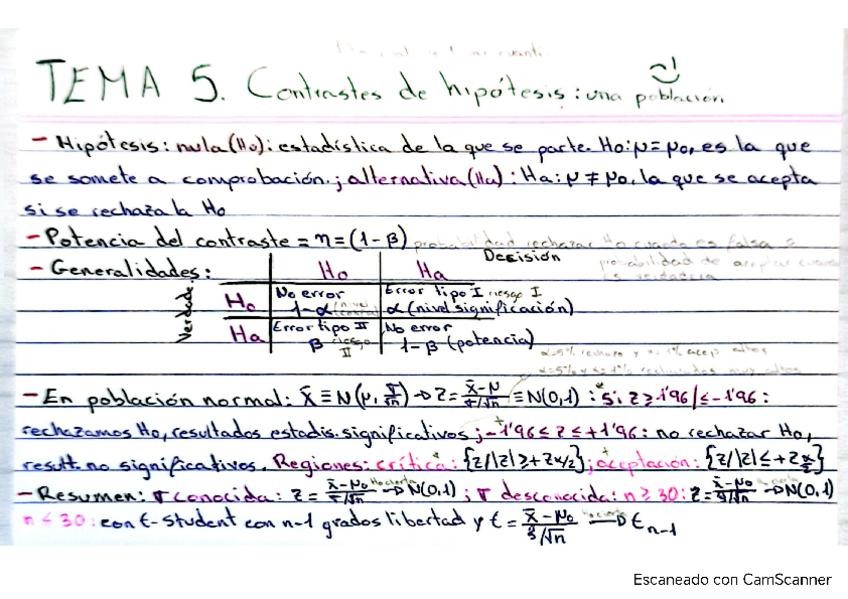 TEMA 5. Contrastes de hipótesis: una población
- Hipótesis: nula (H₀): estadística de la que se parte. H₀: μ = μ₀, es la que
se somete a comprobación.; alternativa (Ha): Ha: μ ≠ μ₀, la que se acepta
si se rechaza la H₀
- Potencia del contraste = η = (1-β) probabilidad rechazar H₀ cuando es falsa =
probabilidad de aceptar cuando
es verdadera
- Generalidades:
Decisión
H₀ Ha
Verdade
H₀ No error 1-α Error tipo I riesgo I α (nivel significación)
Ha Error tipo II β riesgo II No error 1-β (potencia)
- En población normal: x̄ ≡ N(μ, σ/√n) → Z = x̄-μ/σ/√n ≡ N(0,1): si Z ≥ 1'96 / ≤ -1'96:
rechazamos H₀, resultados estadis. significativos; -1'96 ≤ z ≤ +1'96: no rechazar H₀,
result. no significativos. Regiones: crítica: {z/|z| ≥ + Zα/2}; aceptación: {z/|z| ≤ + Zα/2}
- Resumen: σ conocida: Z = x̄-μ₀/σ/√n → N(0,1); σ desconocida: n ≥ 30: Z = x̄-μ₀/ŝ/√n → N(0,1)
n ≤ 30: con t-student con n-1 grados libertad y t = x̄-μ₀/ŝ/√n → t n-1
Escaneado con CamScanner